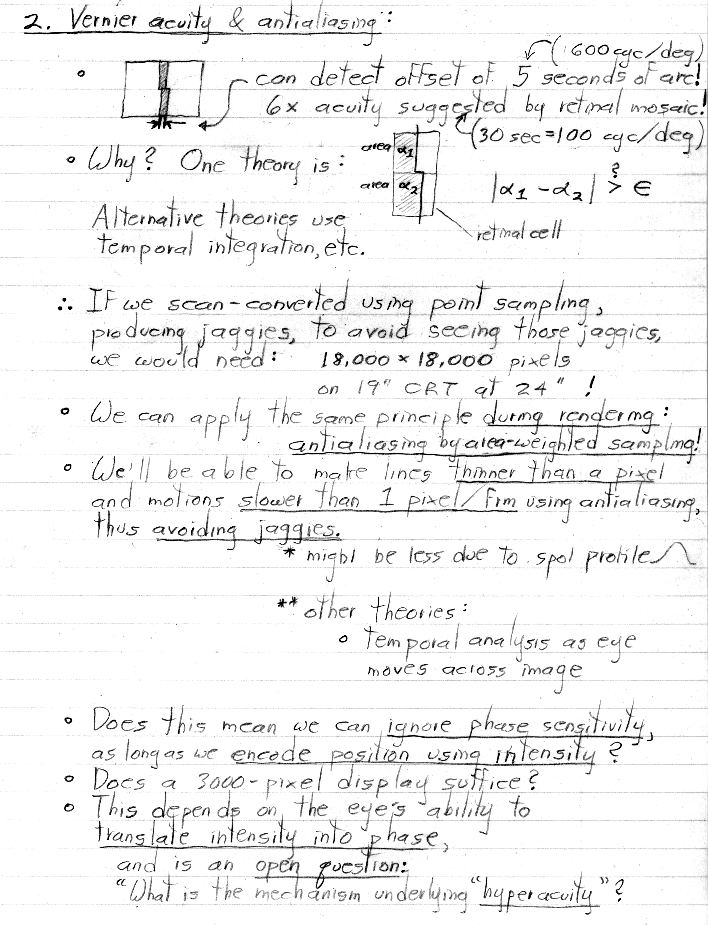 2. Vernier acuity & antialiasing:
(1600 cyc/deg)
° can detect offset of 5 seconds of arc!
6x acuity suggested by retinal mosaic!
(30 sec = 100 cyc/deg)
° Why? One theory is:
area α1
area α2
|α1 - α2| ?> ∈
retinal cell
Alternative theories use
temporal integration, etc.
∴ If we scan-converted using point sampling,
producing jaggies, to avoid seeing those jaggies,
we would need: 18,000 × 18,000 pixels
on 19" CRT at 24" !
° We can apply the same principle during rendering:
antialiasing by area-weighted sampling!
° We'll be able to make lines thinner than a pixel
and motions slower than 1 pixel/frm using antialiasing,
thus avoiding jaggies.
* might be less due to spot profile
** other theories:
° temporal analysis as eye
moves across image
° Does this mean we can ignore phase sensitivity,
as long as we encode position using intensity?
° Does a 3000-pixel display suffice?
° This depends on the eye's ability to
translate intensity into phase,
and is an open question:
"What is the mechanism underlying "hyperacuity"?